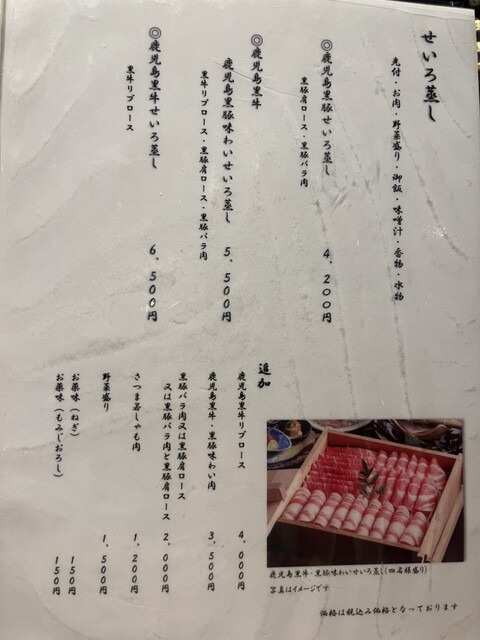 せいろ蒸し
先付・お肉・野菜盛り・御飯・味噌汁・香物・水物
◎鹿児島黒豚せいろ蒸し　４，２００円
黒豚肩ロース・黒豚バラ肉
◎鹿児島黒牛
鹿児島黒豚味わいせいろ蒸し　５，５００円
黒牛リブロース・黒豚肩ロース・黒豚バラ肉
◎鹿児島黒牛せいろ蒸し　６，５００円
黒牛リブロース
追加
鹿児島黒牛リブロース　４，０００円
鹿児島黒牛・黒豚味わい肉　３，５００円
黒豚バラ肉又は黒豚肩ロース
又は黒豚バラ肉と黒豚肩ロース　２，０００円
さつま若しゃも肉　１，２００円
野菜盛り　１，５００円
お薬味（ねぎ）　１５０円
お薬味（もみじおろし）　１５０円
鹿児島黒牛・黒豚味わいせいろ蒸し(四名様盛り)
写真はイメージです
価格は税込み価格となっております